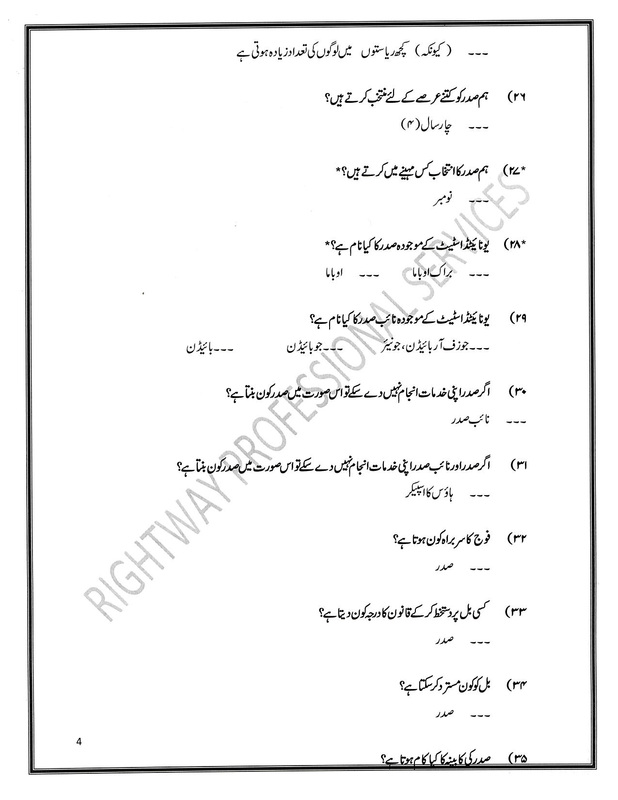 --- (کیونکہ) کچھ ریاستوں میں لوگوں کی تعداد زیادہ ہوتی ہے
۲۶) ہم صدر کو کتنے عرصے کے لئے منتخب کرتے ہیں؟
--- چار سال (۴)
*۲۷) ہم صدر کا انتخاب کس مہینے میں کرتے ہیں؟*
--- نومبر
*۲۸) یونائیٹڈ اسٹیٹ کے موجودہ صدر کا کیا نام ہے؟*
--- براک اوباما --- اوباما
۲۹) یونائیٹڈ اسٹیٹ کے موجودہ نائب صدر کا کیا نام ہے؟
---جوزف آر بائیڈن، جونیئر ---جو بائیڈن ---بائیڈن
۳۰) اگر صدر اپنی خدمات انجام نہیں دے سکے تو اس صورت میں صدر کون بنتا ہے؟
--- نائب صدر
۳۱) اگر صدر اور نائب صدر اپنی خدمات انجام نہیں دے سکے تو اس صورت میں صدر کون بنتا ہے؟
--- ہاؤس کا اسپیکر
۳۲) فوج کا سربراہ کون ہوتا ہے؟
--- صدر
۳۳) کسی بل پر دستخط کر کے قانون کا درجہ کون دیتا ہے؟
--- صدر
۳۴) بل کو کون مسترد کر سکتا ہے؟
--- صدر
4
۳۵) صدر کی کابینہ کا کیا کام ہوتا ہے؟
RIGHTWAY PROFESSIONAL SERVICES